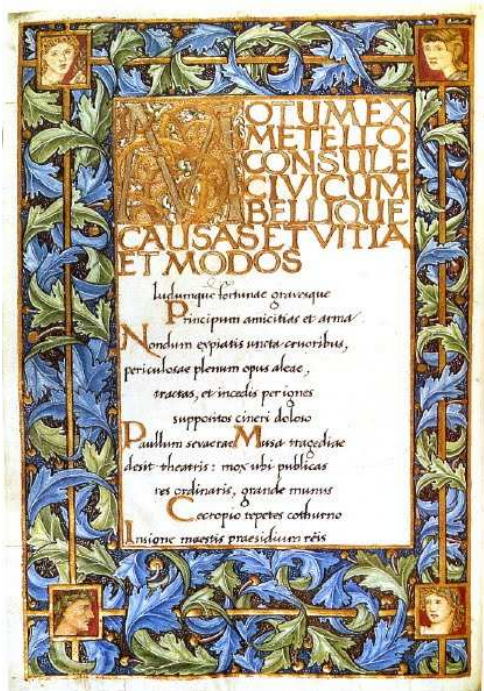 MOTUM EX
METELLO
CONSULE
CIVICUM
BELLIQUE
CAUSAS ET VITIA
ET MODOS
ludumque fortunae gravesque
Principum amicitias et arma
Nondum expiatis uncta cruoribus,
periculosae plenum opus aleae,
tractas, et incedis per ignes
suppositos cineri doloso
Paullum severae Musa tragediae
desit theatris : mox ubi publicas
res ordinaris, grande munus
Cecropio repetes cothurno
Insigne maestis praesidium reis